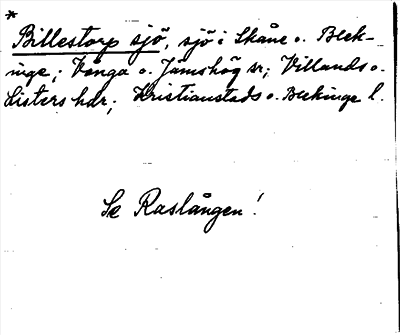 *
Billestorp sjö, sjö i Skåne o. Bleck-
inge; Vånga o. Jämshög sr; Villands o.
Listers hdr; Kristianstads o. Blekinge l.
Se Raslången!